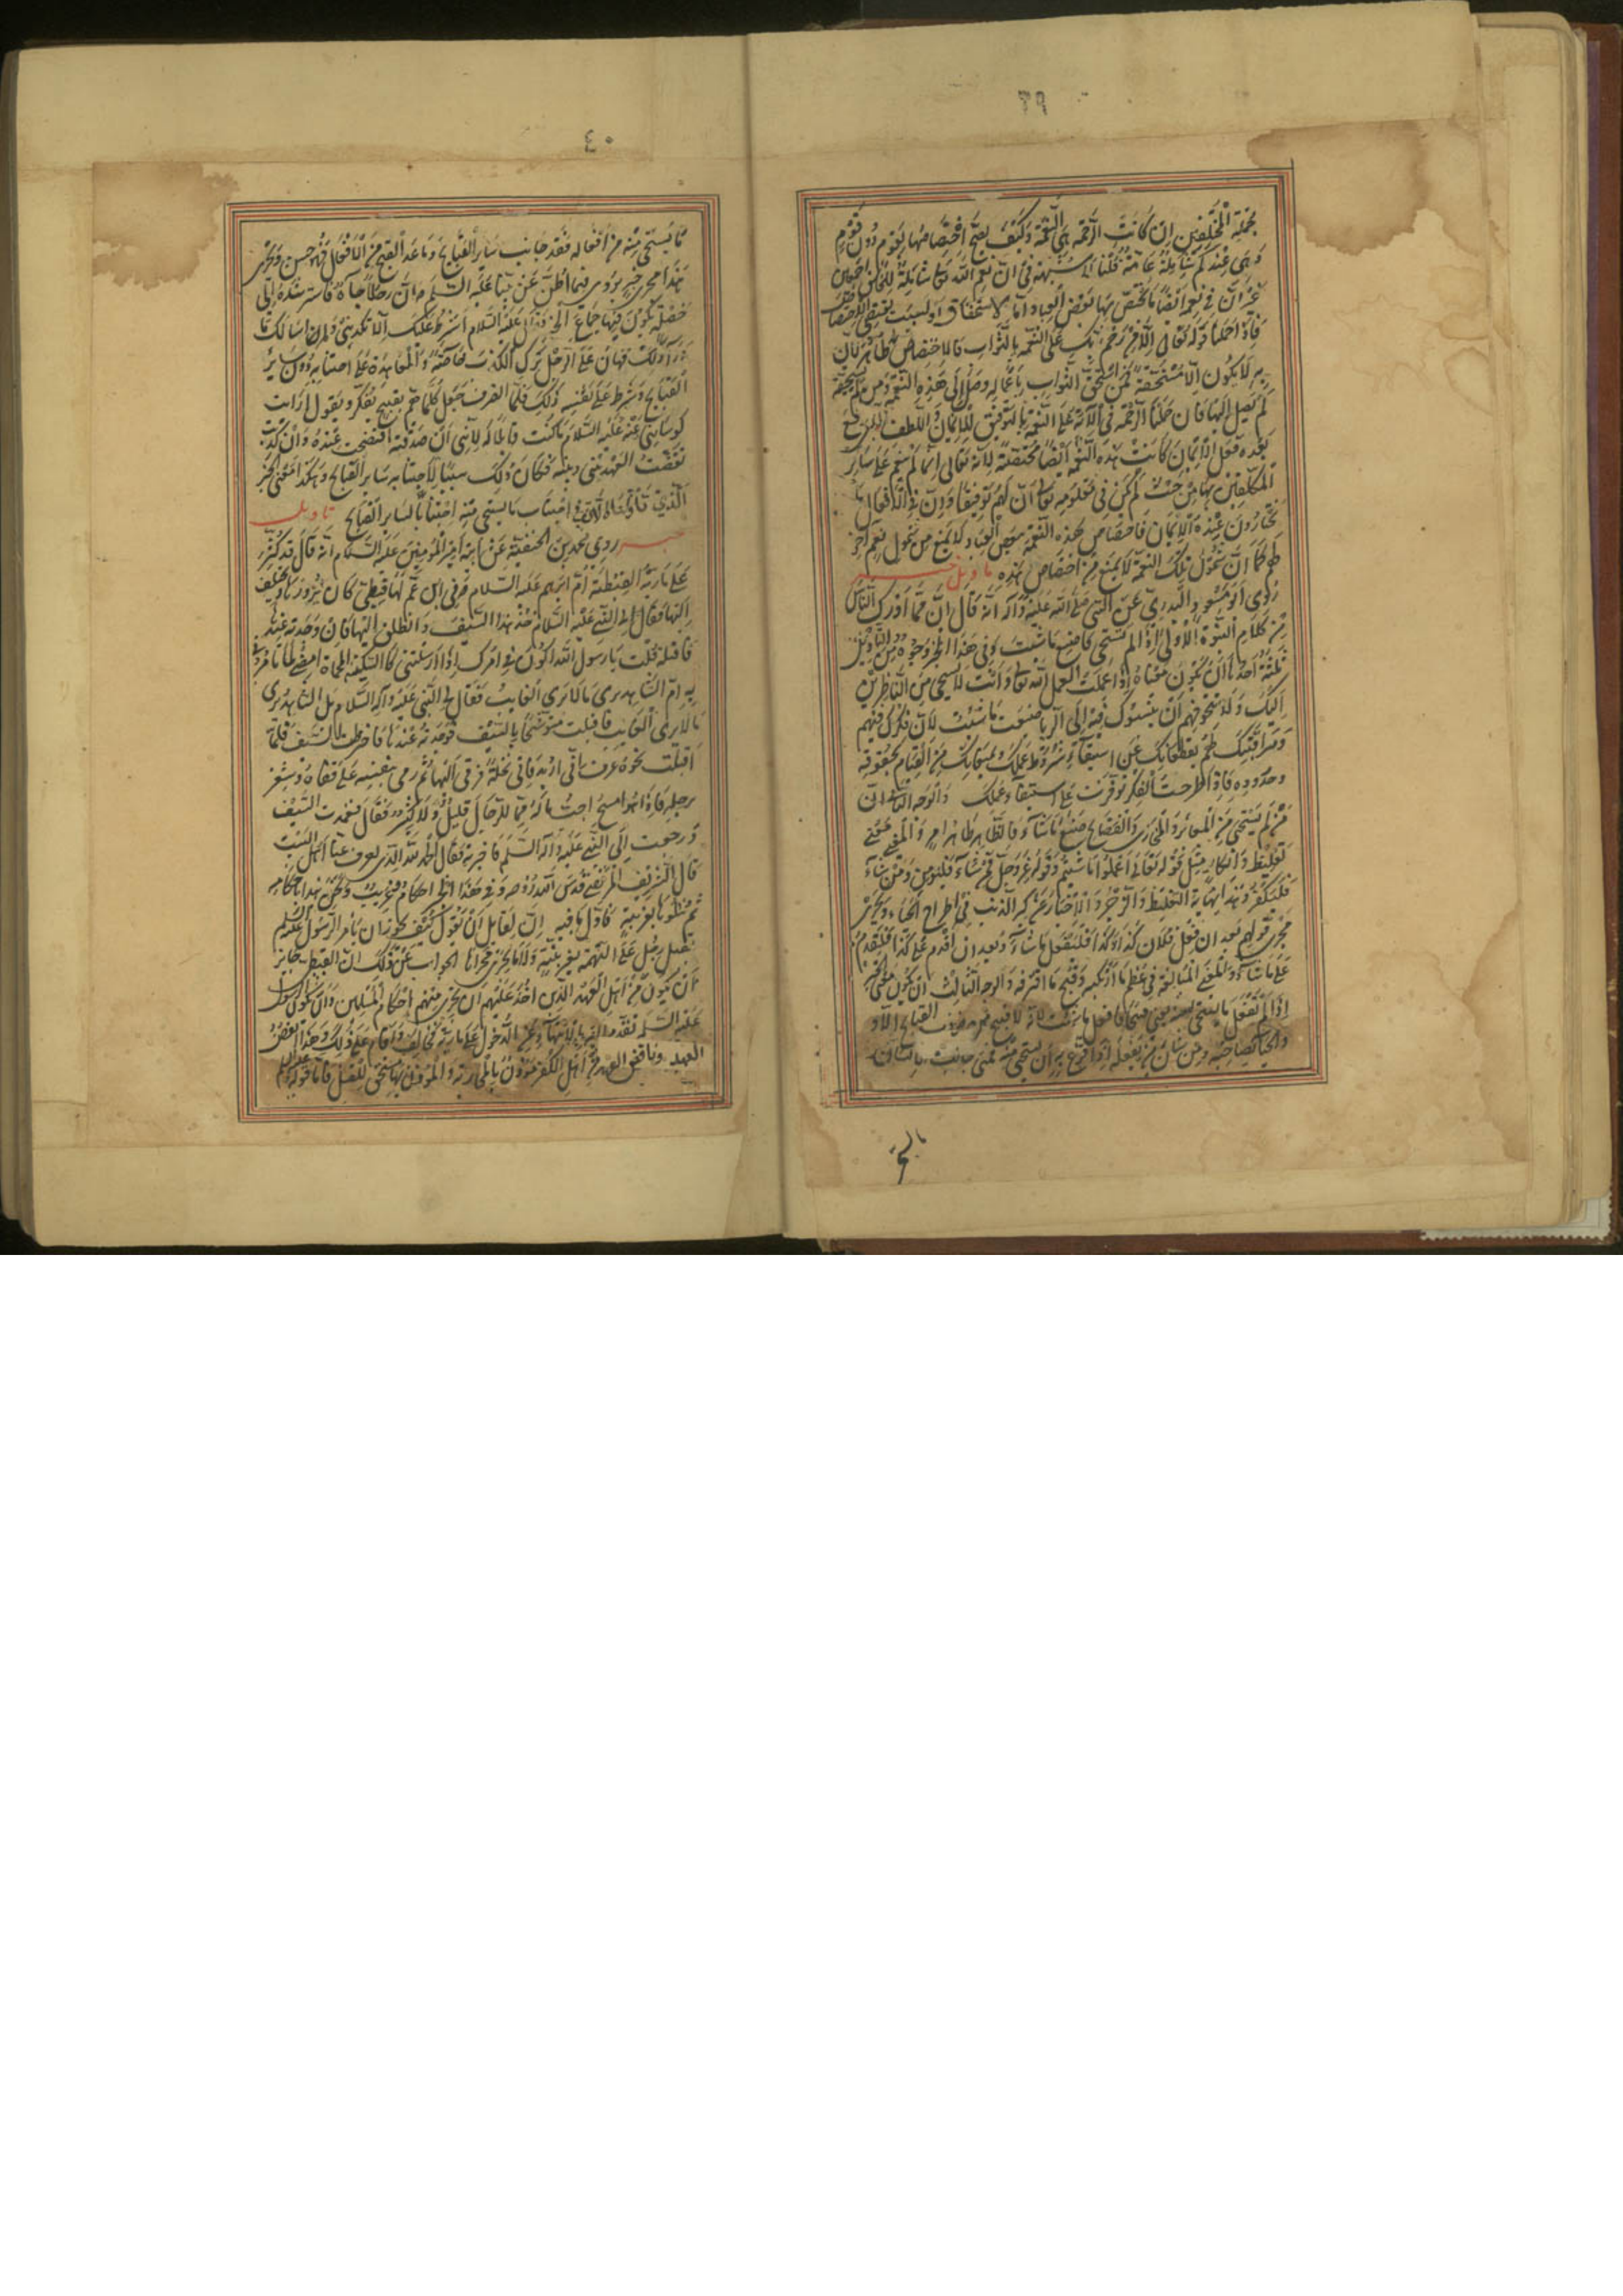 ٣٩
بجملة المختلفين ان كانت الرحمة هي النعمة وكيف يصح اختصاصها بقوم دون قوم
وهي عندكم شاملة عامة قلنا لا شبهة في ان نعم الله تعالى شاملة للخلق اجمعين
غير ان في نعمه ايضا ما يختص بها بعض العباد اما لاستحقاق او لسبب يقتضي الاختصاص
فاذا حملنا قوله تعالى الا من رحم ربك على النعمة بالثواب فالاختصاص ظاهر لان
به لا يكون الا مستحقة فمن استحق الثواب باعماله وصل الى هذه النعمة ومن لم يستحقه
لم يصل اليها فان حملنا الرحمة في الآية على النعمة بالتوفيق للايمان واللطف الذي وقع
بعده فعل الايمان كانت هذه النعمة ايضا مختصة لانه تعالى انما لم ينعم على سائر
المكلفين بها من حيث لم يكن في معلومه تعالى ان لهم توفيقا وان في الافعال ما
يختارون عنده الايمان فاختصاص هذه النعمة ببعض العباد لا يمنع من شمول نعم اخر
لهم كما ان شمول تلك النعمة لا يمنع من اختصاص هذه تاويل خبر
روى ابو مسعود البدري عن النبي صلى الله عليه وآله انه قال ان مما ادرك الناس
من كلام النبوة الاولى اذا لم تستحي فاصنع ما شئت وفي هذا الخبر وجوه من التاويل
ثلثة احدها ان يكون معناه اذا عملت العمل لله تعالى وانت لا تستحي من الناظرين
اليك ولا تتخوفهم ان ينسبوك فيه الى الريا صنعت ما شئت لان فكرك فيهم
ومراقبتك لهم يقطعانك عن استيفاء شروط عملك ويمنعانك من القيام بحقوقه
وحدوده فاذا اطرحت الفكر توفرت على استيفاء عملك والوجه الثاني ان
من لم يستحي من المعاير والمخازي والفضايح صنع ما شاء فالظاهر ظاهر امر والمعنى معنى
تغليظ وانكار مثل قوله تعالى اعملوا ما شئتم وقوله عز وجل فمن شاء فليؤمن ومن شاء
فليكفر وهذا نهاية التغليظ والزجر والاخبار عن كبر الذنب في اطراح الحياء ويجري
مجرى قولهم بعد ان فعل فلان كذا وكذا فليفعل ما شاء وبعد ان اقدم على كذا فليقدم
على ما شاء والمعنى المبالغة في عظم ما ارتكبه وقبح ما اقترفه والوجه الثالث ان يكون معنى الخبر
اذا لم تفعل ما يستحي منه فافعل ما شئت لانه لا قبيح من ضروب القبايح الا و
والحيا يصاحبه ومن شان من يفعله اذا قرع به ان يستحي منه فمتى جانب الانسان
ما
٤٠
ما يستحي منه من افعاله فقد جانب ساير القبايح وما عدا القبيح من الافعال فهو حسن ويجري
هذا مجرى خبر يروى فيما اظن عن نبينا عليه السلم وان رجلا جاءه فاسترشده الى
خصلة يكون فيها جماع الخير فقال عليه السلام اشترط عليك الا تكذبني ولم اسالك ما
وراء ذلك فهان على الرجل ترك الكذب خاصة والمعاهدة على اجتنابه دون ساير
القبايح وشرط على نفسه ذلك فلما انصرف جعل كلما هم بقبيح تفكر ويقول ارايت
لو سالني عنه عليه السلام ما كنت قائلا له لانني ان صدقته افتضحت عنده وان كذبت
نقضت العهد بيني وبينه فكان ذلك سببا لاجتنابه ساير القبايح وهكذا معنى الخبر
الذي تاولناه لان اجتناب ما يستحي منه اجتناب لساير القبايح تاويل
خبر روى محمد بن الحنفية عن ابيه امير المؤمنين عليه السلام انه قال قد كثر
على مارية القبطية ام ابرهيم عليه السلام في ابن عم لها قبطي كان يزورها ويختلف
اليها فقال لي النبي عليه السلام خذ هذا السيف وانطلق اليها فان وجدته عندها
فاقتله قلت يا رسول الله اكون في امرك اذا ارسلتني كالسكة المحماة امضي لما تامرني
به ام الشاهد يرى ما لا يرى الغايب فقال لي النبي عليه وآله السلام بل الشاهد يرى
ما لا يرى الغايب فاقبلت متوشحا بالسيف فوجدته عندها فاخترطت السيف فلما
اقبلت نحوه عرف انني اريده فاتى نخلة فرقي اليها ثم رمى بنفسه على قفاه وشغر
برجليه فاذا هو امسح اجب ما له مما للرجال قليل ولا كثير قال فغمدت السيف
ورجعت الى النبي عليه وآله السلم فاخبرته فقال الحمد لله الذي يصرف عنا اهل البيت
قال الشريف المرتضى قدس الله روحه وفي هذا الخبر احكام وغريب ونحن نبدا باحكامه
ثم نتلوها بغريبه فاول ما فيه ان لقايل ان يقول كيف يجوز ان يامر الرسول عليه السلم
بقتل رجل على التهمة بغير بينة ولا ما يجري مجراها الجواب عن ذلك ان القبطي جايز
ان يكون من اهل العهد الذين اخذ عليهم ان يجري فيهم احكام المسلمين وان يكون الرسول
عليه السلم تقدم اليه بالانتهاء عن الدخول على مارية فخالف واقام على ذلك وهذا نقض
العهد وناقض العهد من اهل الكفر مؤذن بالمحاربة والمؤذن بها مستحق للقتل فاما قوله